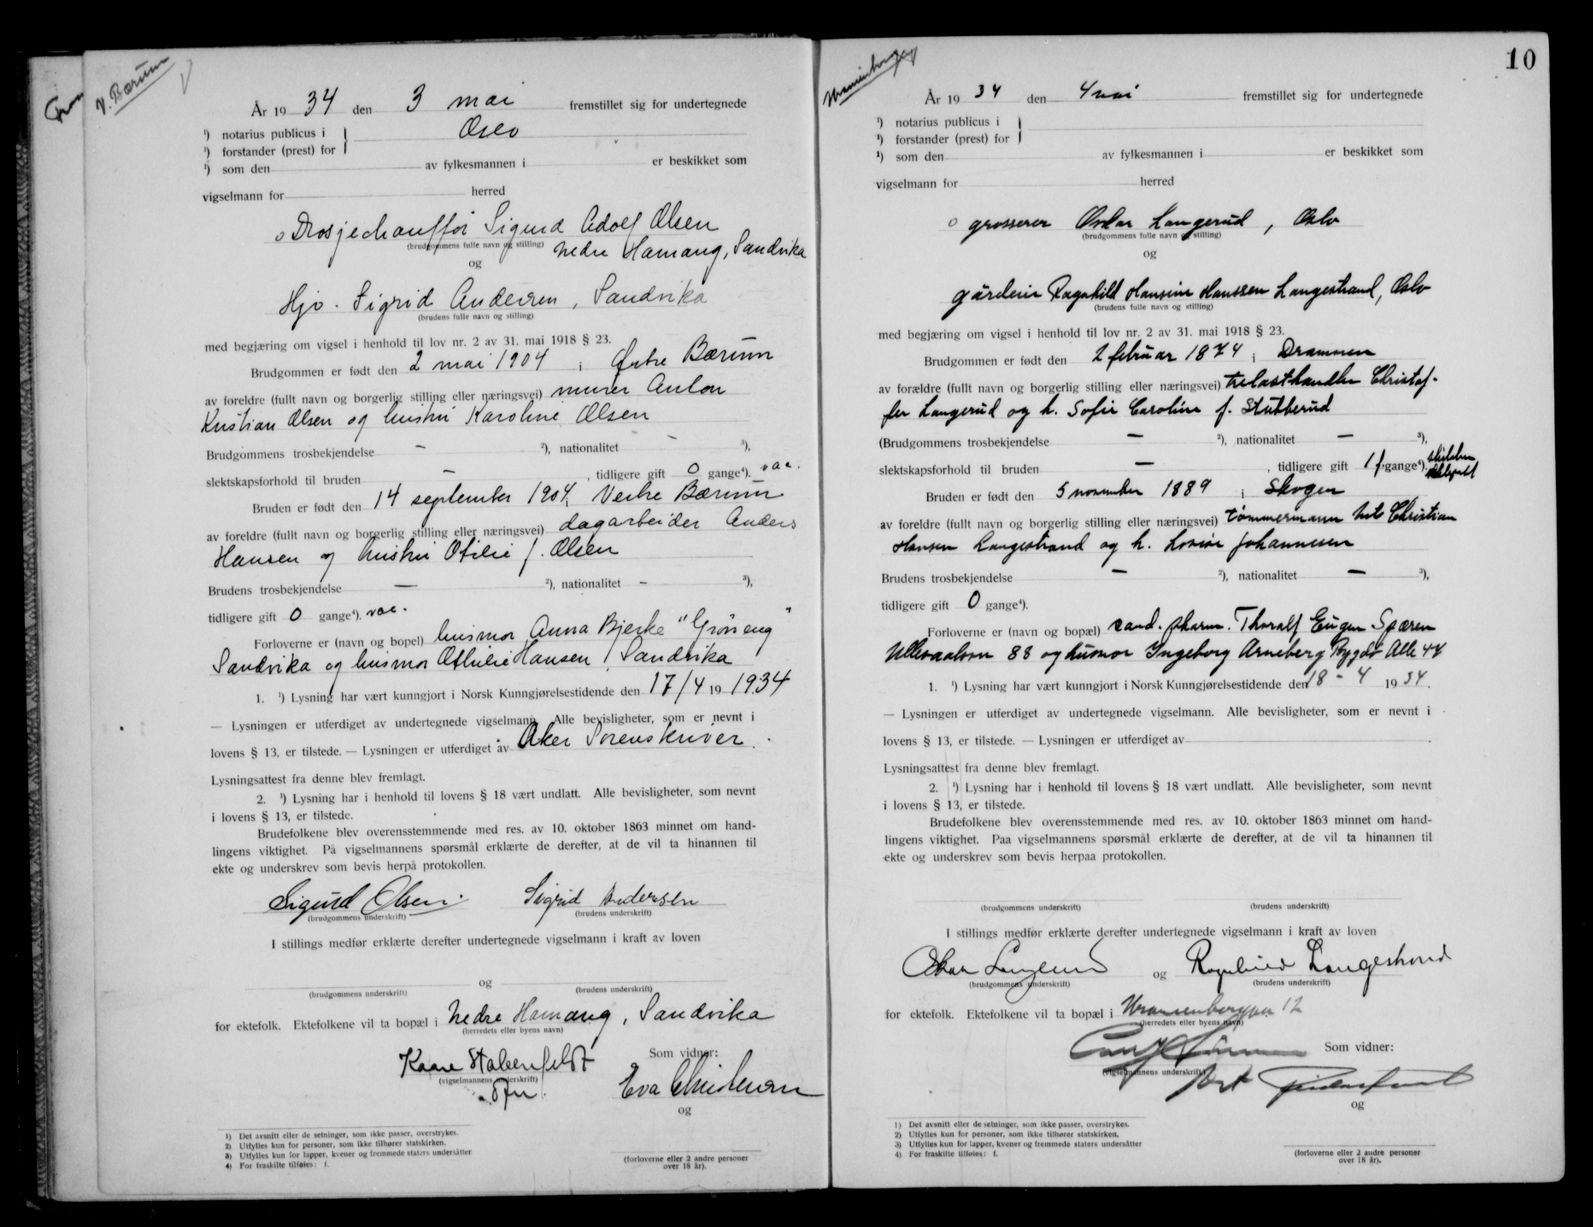 V. Bærum
År 19 34 den 3 mai fremstillet sig for undertegnede
¹) notarius publicus i
Oslo
¹) forstander (prest) for
¹) som den av fylkesmannen i er beskikket som
vigselmann for herred
Drosjechauffør Sigurd Adolf Olsen
(brudgommens fulle navn og stilling) Nedre Hamang, Sandvika
og
Hjv. Sigrid Andersen, Sandvika
(brudens fulle navn og stilling)
med begjæring om vigsel i henhold til lov nr. 2 av 31. mai 1918 § 23.
Brudgommen er født den 2 mai 1904 i Østre Bærum
av foreldre (fullt navn og borgerlig stilling eller næringsvei) murer Anton
Kristian Olsen og hustru Karoline Olsen
Brudgommens trosbekjendelse — ²), nationalitet — ³),
slektskapsforhold til bruden — , tidligere gift 0 gange⁴). vac.
Bruden er født den 14 september 1904, Vestre Bærum
av foreldre (fullt navn og borgerlig stilling eller næringsvei) dagarbeider Anders
Hansen og hustru Otilie f. Olsen
Brudens trosbekjendelse — ²), nationalitet — ³),
tidligere gift 0 gange⁴). vac.
Forloverne er (navn og bopel) husmor Anna Bjerke "Grøneng"
Sandvika og husmor Othilie Hansen, Sandvika
1. ¹) Lysning har vært kunngjort i Norsk Kunngjørelsestidende den 17/4 19 1934
— Lysningen er utferdiget av undertegnede vigselmann. Alle bevisligheter, som er nevnt i
lovens § 13, er tilstede. — Lysningen er utferdiget av Aker Sorenskriver.
Lysningsattest fra denne blev fremlagt.
2. ¹) Lysning har i henhold til lovens § 18 vært undlatt. Alle bevisligheter, som nevnt
i lovens § 13, er tilstede.
Brudefolkene blev overensstemmende med res. av 10. oktober 1863 minnet om hand-
lingens viktighet. På vigselmannens spørsmål erklærte de derefter, at de vil ta hinannen til
ekte og underskrev som bevis herpå protokollen.
Sigurd Olsen. Sigrid Andersen
(brudgommens underskrift) (brudens underskrift)
I stillings medfør erklærte derefter undertegnede vigselmann i kraft av loven
og
(brudgommens underskrift) (brudens underskrift)
for ektefolk. Ektefolkene vil ta bopæl i Nedre Hamang, Sandvika
(herredets eller byens navn)
Kaare Stabenfeldt Som vidner:
(vigselmannens underskrift)
Eva Christensen
og
1) Det avsnitt eller de setninger, som ikke passer, overstrykes.
2) Utfylles kun for personer, som ikke tilhører statskirken.
3) Utfylles kun for lapper, kvener og fremmede staters undersåtter
4) For fraskilte tilføies: f.
(forloverne eller 2 andre personer
over 18 år).
10
År 19 34 den 4 mai fremstillet sig for undertegnede
¹) notarius publicus i
¹) forstander (prest) for
¹) som den av fylkesmannen i er beskikket som
vigselmann for herred
grosserer Oskar Langerud, Oslo
(brudgommens fulle navn og stilling)
og
Ragnhild Hansine Hanssen Langestrand, Oslo
(brudens fulle navn og stilling)
med begjæring om vigsel i henhold til lov nr. 2 av 31. mai 1918 § 23.
Brudgommen er født den 2 februar 1874 i Drammen
av forældre (fullt navn og borgerlig stilling eller næringsvei) trelasthandler Christof-
fer Langerud og h. Sofie Caroline f. Stubberud
(Brudgommens trosbekjendelse — ²), nationalitet — ³),
slektskapsforhold til bruden — , tidligere gift 1 f. gange⁴).
Bruden er født den 5 november 1889 i Skoger
av foreldre (fullt navn og borgerlig stilling eller næringsvei) tømmermann Christian
Hansen Langestrand og h. Lovise Johannesen
Brudens trosbekjendelse — ²), nationalitet — ³),
tidligere gift 0 gange⁴).
Forloverne er (navn og bopæl) cand. pharm. Thoralf Eugen Spæren
Ullevaalsvn 88 og husmor Ingeborg Arneberg Bygdø Alle 44
1. ¹) Lysning har vært kunngjort i Norsk Kunngjørelsestidende den 18 - 4 19 34.
— Lysningen er utferdiget av undertegnede vigselmann. Alle bevisligheter, som er nevnt i
lovens § 13, er tilstede. — Lysningen er utferdiget av
Lysningsattest fra denne blev fremlagt.
2. ¹) Lysning har i henhold til lovens § 18 vært undlatt. Alle bevisligheter, som nevnt
i lovens § 13, er tilstede.
Brudefolkene blev overensstemmende med res. av 10. oktober 1863 minnet om hand-
lingens viktighet. Paa vigselmannens spørsmål erklærte de derefter, at de vil ta hinannen til
ekte og underskrev som bevis herpaa protokollen.
(brudgommens underskrift) (brudens underskrift)
I stillings medfør erklærte derefter undertegnede vigselmann i kraft av loven
Oskar Langerud og Ragnhild Langestrand
(brudgommens underskrift) (brudens underskrift)
for ektefolk. Ektefolkene vil ta bopæl i Uranienborggaten 12
(herredets eller byens navn)
Som vidner:
(vigselmannens underskrift)
og
1) Det avsnitt eller de setninger, som ikke passer, overstrykes.
2) Utfylles kun for personer, som ikke tilhører statskirken.
3) Utfylles kun for lapper, kvener og fremmede staters undersåtter
4) For fraskilte tilføies: f.
(forloverne eller 2 andre personer
over 18 år).